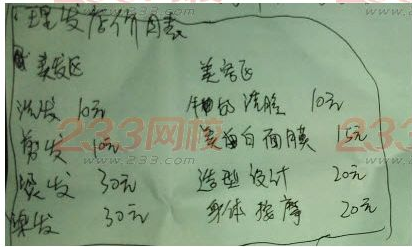 理发店价目表
美发区 美容区
洗发 10元 牛奶洗脸 10元
剪发 10元 美蛋白面膜 15元
烫发 30元 造型设计 20元
染发 30元 身体按摩 20元
233网校
www.233.com